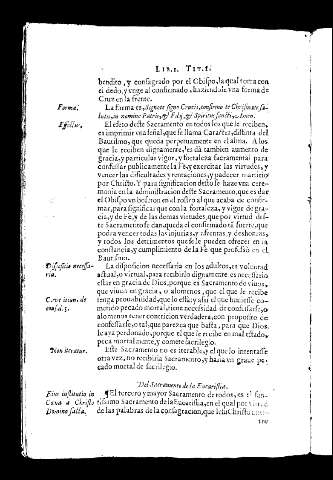 LIB. I. TIT. I.
bendito, y consagrado por el Obispo, la qual toma con
el dedo, y vnge al confirmado, haziendole vna forma de
Cruz en la frente.
Forma.
La forma es, Signo te signo Crucis, confirmo te Chrismate sa-
lutis, in nomine Patris, & Filij, & Spiritus sancti, Amen.
Effectus.
El efeto deste Sacramento en todos los que le reciben,
es imprimir vna señal, que se llama Caracter, distinta del
Bautismo, que queda perpetuamente en el alma. A los
que le reciben dignamente, les dà tambien aumento de
gracia, y particular vigor, y fortaleza sacramental para
confessar publicamente la Fe, y exercitar las virtudes, y
vencer las dificultades y tentaciones, y padecer martirio
por Christo. Y para significacion desto se haze vna cere-
monia en la administracion deste Sacramento, que es dar
el Obispo vn bofeton en el rostro al que acaba de confir-
mar, para significar que con la fortaleza, y vigor de gra-
cia, y de Fe, y de las demas virtudes, que por virtud des-
te Sacramento se dan, queda el confirmado tã fuerte, que
podra vencer todas las injurias, y afrentas, y deshonras,
y todos los detrimentos que se le pueden ofrecer en la
constancia, y cumplimiento de la Fè que professò en el
Bautismo.
Dispositio necessa-
ria.
La disposicion necessaria en los adultos, es voluntad
actual, o virtual, para recibirlo dignamente es necessario
estar en gracia de Dios, porque es Sacramento de viuos,
que viuan en gracia, o alomenos, que el que le recibe
tenga prouabilidad, que lo està, y assi el que huuiesse co-
metido pecado mortal, tiene necessidad de confessarse, o
alomenos tener contricion verdadera, con proposito de
confessarse, o tal, que parezca que basta, para que Dios
le aya perdonado, porque el que le recibe en mal estado,
peca mortalmente, y comete sacrilegio.
Non iteratur.
Este Sacramento no es iterable, y el que lo intentasse
otra vez, no recibiria Sacramento, y haria vn graue pe-
cado mortal de sacrilegio.
Del Sacramento de la Eucaristia.
Fuit institutũ in
Cœna a Christo
Domino
¶ El tercero y mayor Sacramento de todos, es el san-
tissimo Sacramento de la Eucaristia, en el qual por virtud
de las palabras de la consagracion, que Iesu Christo